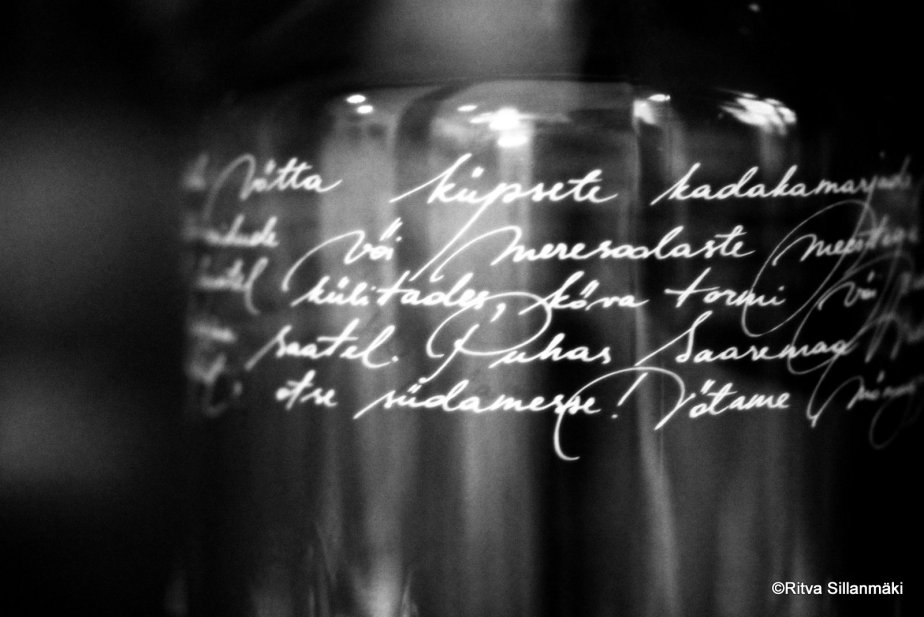 võtta küpsete kadakamarjade
või meresoolaste
külitades, kõva tormi või
saatel. Puhas Saaremaa
otse südamesse! Võtame
©Ritva Sillanmäki